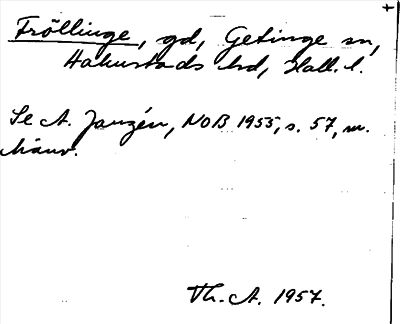 Fröllinge, gd, Getinge sn,
Halmstads hd, Hall. l.
Se A. Janzén, NoB 1955, s. 57, m.
hänv.
Th. A. 1957.